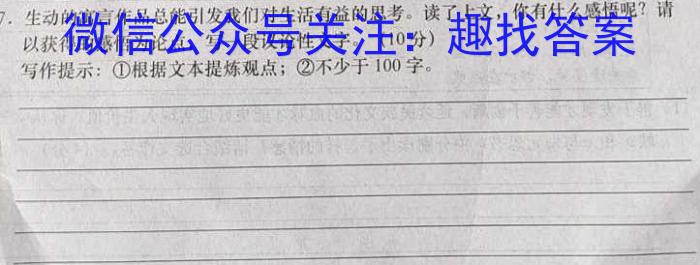 7. 生动的寓言作品总能引发我们对生活有益的思考。读了上文，你有什么感悟呢？请
以获得的感悟为论点，写一段议论性文字。（10分）
微信公众号关注：趣找答案
写作提示：①根据文本提炼观点；②不少于100字。